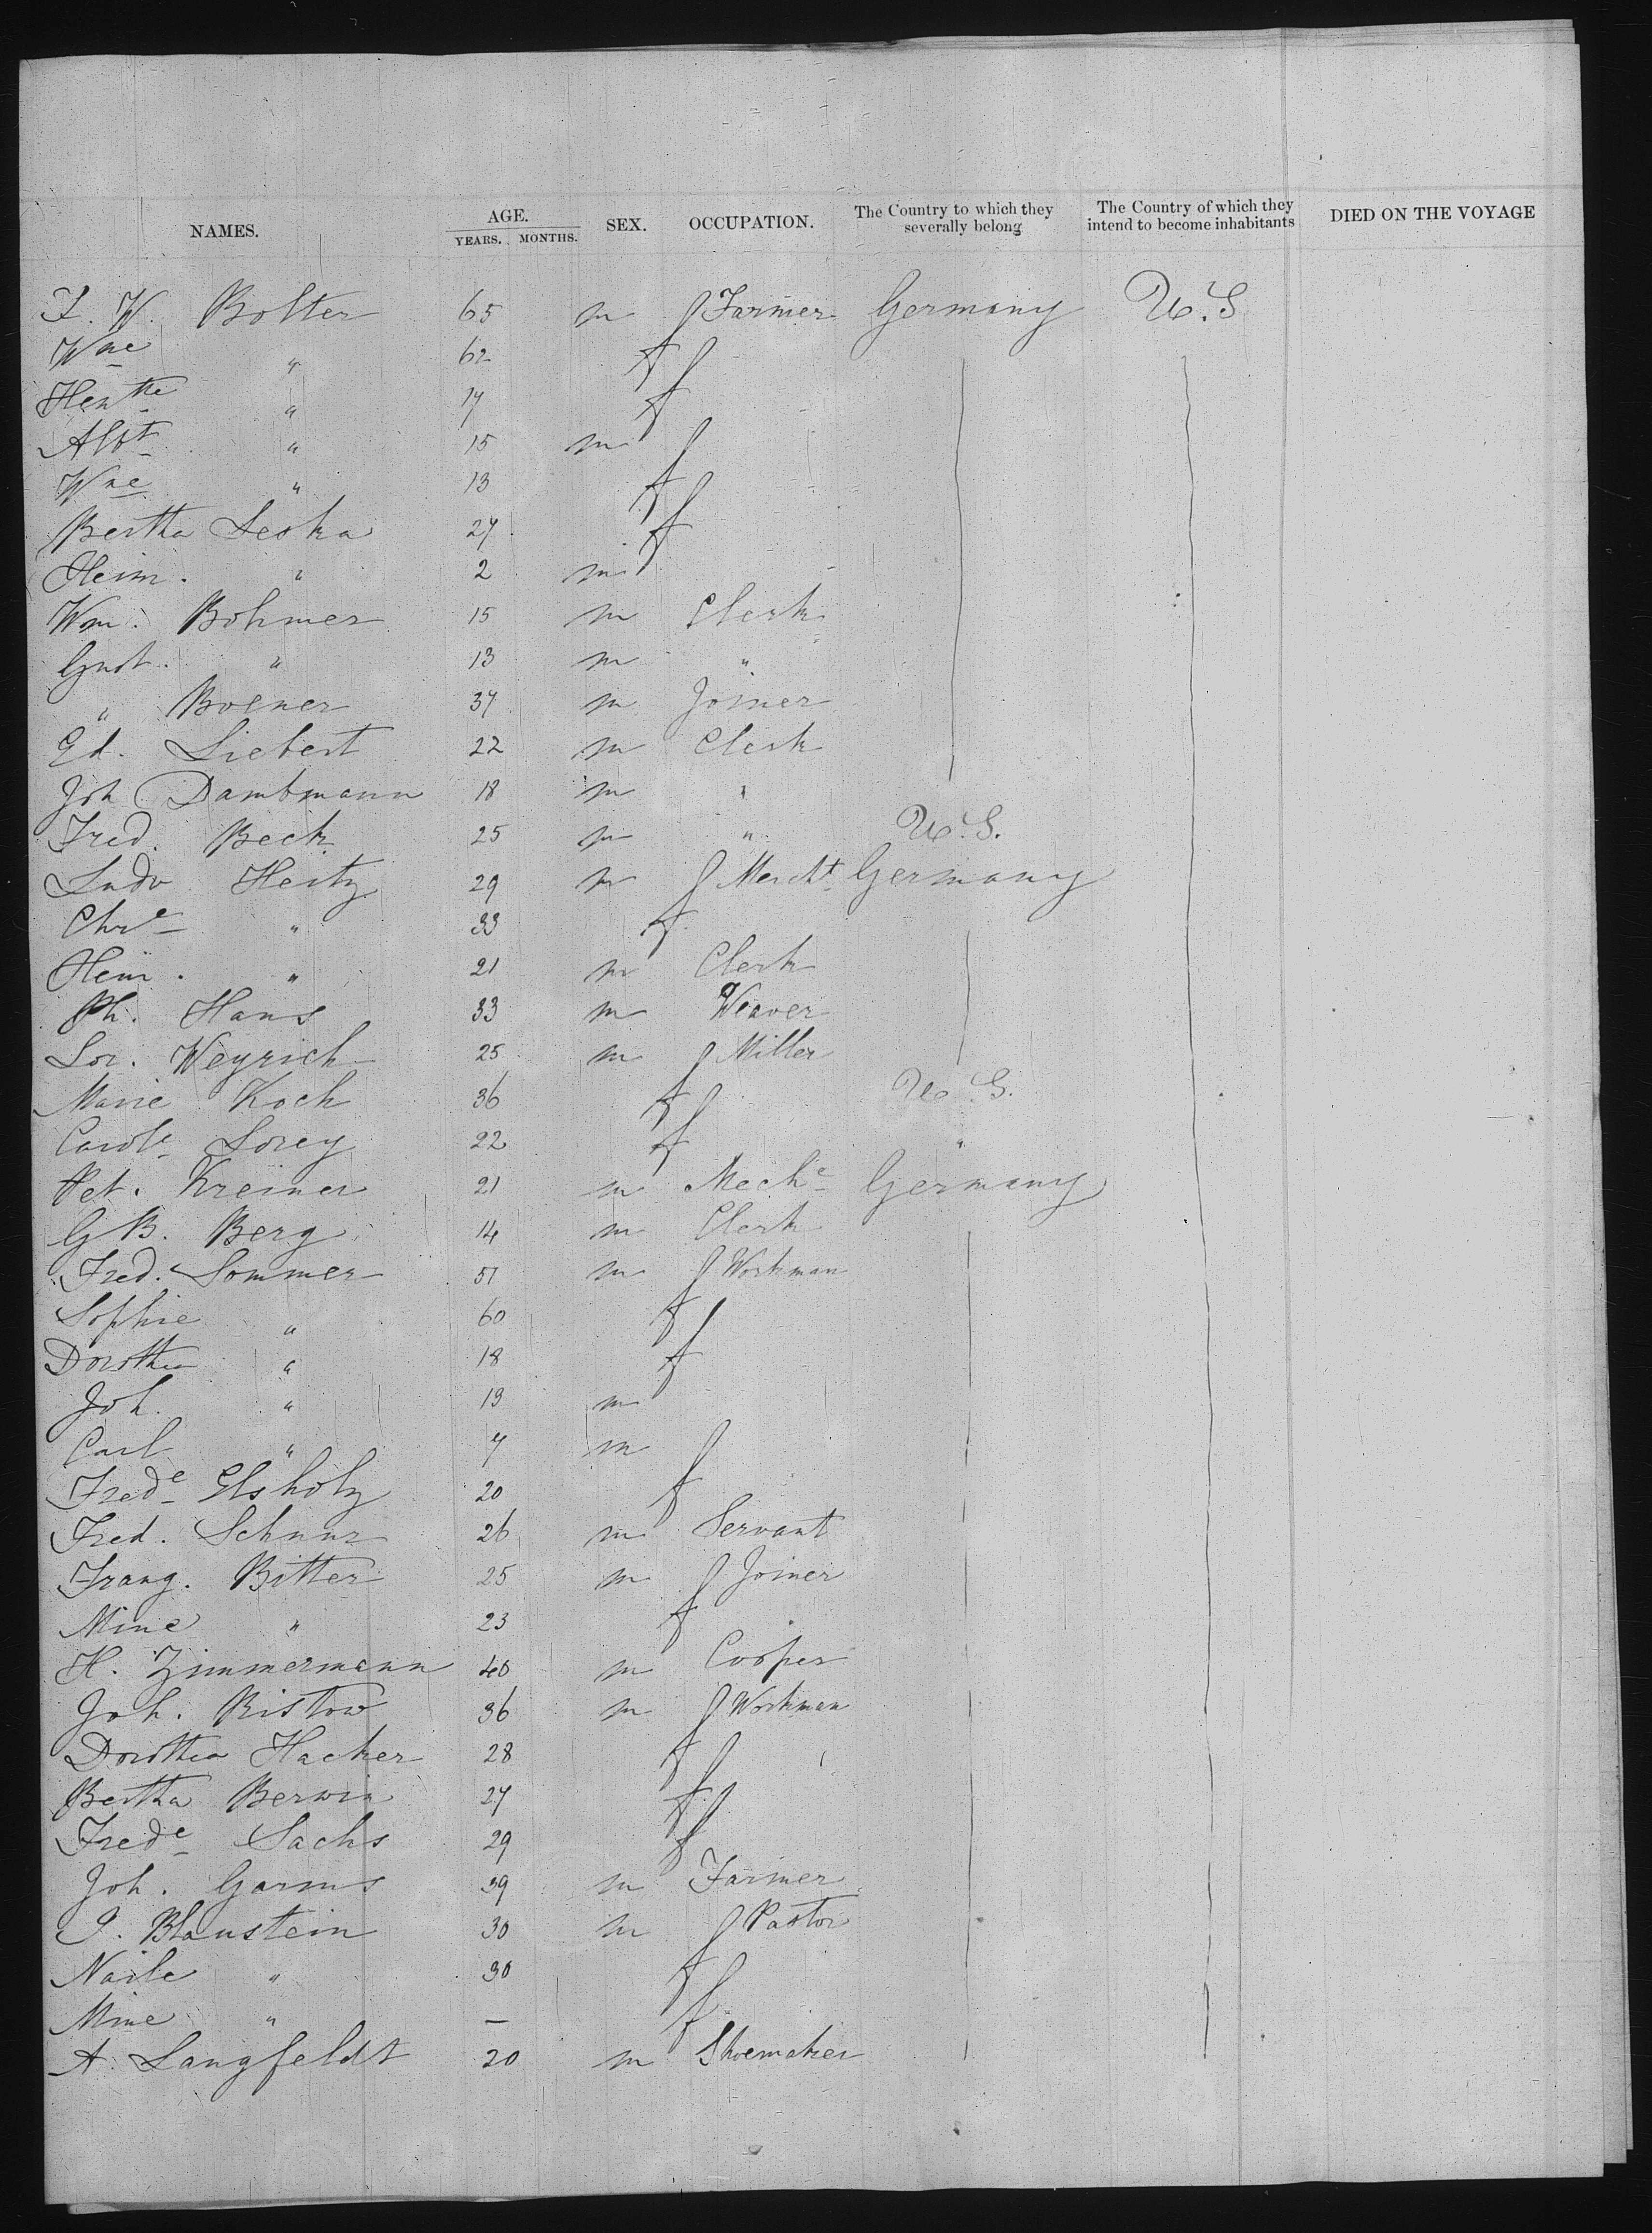 NAMES. AGE. YEARS. MONTHS. SEX. OCCUPATION. The Country to which they severally belong The Country of which they intend to become inhabitants DIED ON THE VOYAGE
F. W. Bolter 65 m Farmer Germany U.S
Wne " 62 f
Hentte " 17 f
Albt " 15 m
Wne " 13 f
Bertha Leska 27 f
Heinr. " 2 m
Wm. Bohmer 15 m Clerk
Gust. " 13 m "
" Boener 37 m Joiner
Ed. Liebert 22 m Clerk
Joh Dambmann 18 m "
Fred. Beck 25 m " U.S.
Ludv Hertz 29 m Mercht Germany
Chre " 33 f
Heinr. " 21 m Clerk
Ph. Hans 33 m Weaver
Lor. Weyrich 25 m Miller
Marie Koch 36 f U.S.
Carole Lorey 22 f "
Pet. Kreiner 21 m Meche Germany
G B. Berg 14 m Clerk
Fred. Sommer 51 m Workman
Sophie " 60 f
Dorothea " 18 f
Joh. " 13 m
Carl " 7 m
Frede Elsholz 20 f
Fred. Schnur 26 m Servant
Franz. Bitter 25 m Joiner
Mine " 23 f
H. Zimmermann 40 m Cooper
Joh. Ristow 36 m Workman
Dorothea Hacker 28 f
Bertha Berwin 27 f
Frede Sachs 29 f
Joh. Garms 39 m Farmer
Blaustein 30 m Pastor
" 30 f
Mine " — f
A. Langfeldt 20 m Shoemaker